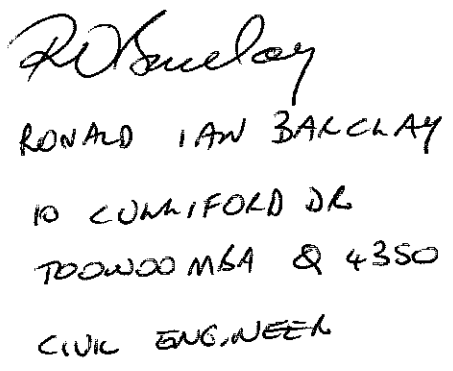 RONALD IAN BARCLAY
10 CULLIFORD DR
TOOWOOMBA Q 4350
CIVIL ENGINEER